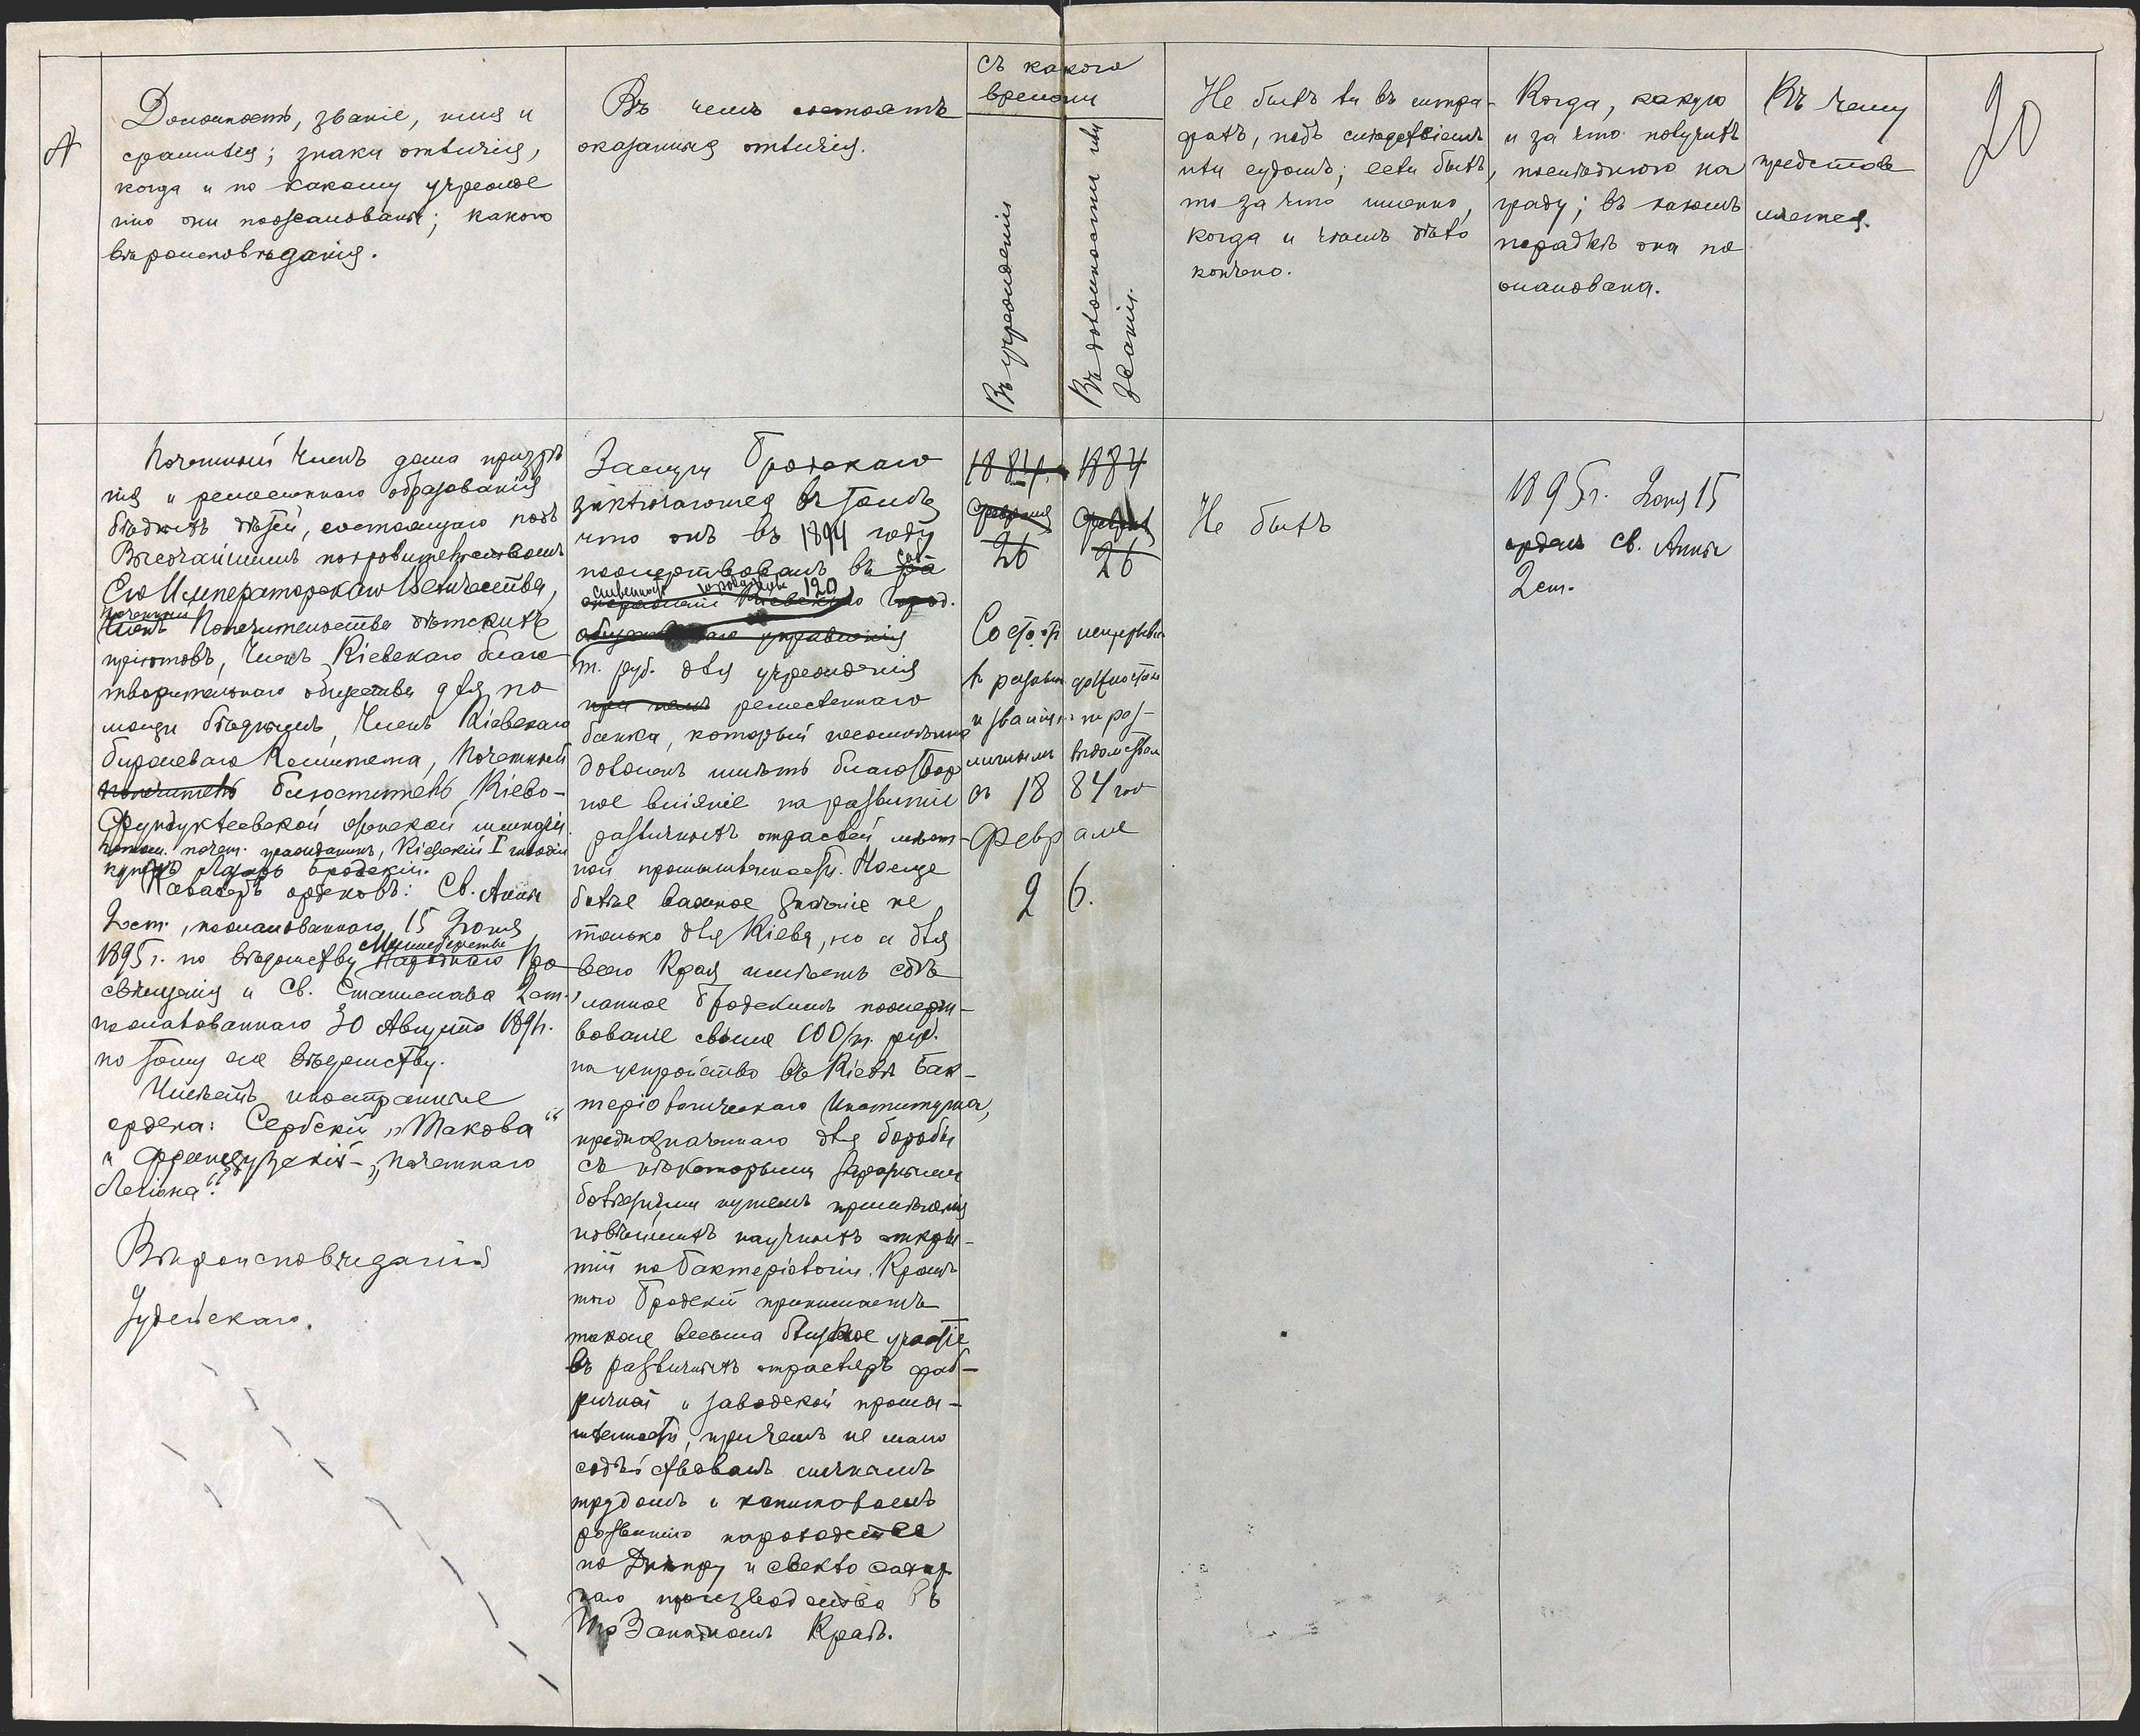 20
№
Должность, званіе, имя и
фамилія; знаки отличія,
когда и по какому учрежде
нію они пожалованы; какого
вѣроисповѣданія.
Въ чемъ состоятъ
оказанныя отличія.
Съ какого
времени
Въ учрежденіи
Въ должности или
званіи.
Не былъ ли въ штра-
фахъ, подъ слѣдствіемъ
или судомъ; если былъ,
то за что именно,
когда и чѣмъ дѣло
кончено.
Когда, какую
и за что получилъ
послѣднюю на
граду; въ какомъ
порядкѣ она по
жалована.
Къ чему
представ
ляется.
Почетный Членъ дома призрѣ
нія и ремесленнаго образованія
бѣдныхъ дѣтей, состоящаго подъ
Высочайшимъ покровительствомъ
Его Императорскаго Величества,
Почетный
Членъ Попечительства дѣтскихъ
пріютовъ, Членъ Кіевскаго благо
творительнаго общества для по
мощи бѣднымъ, Членъ Кіевскаго
биржеваго Комитета, Почетный
попечитель блюститель Кіево-
Фундуклеевской женской гимназіи
Потом. почет. гражданинъ, Кіевскій I гильдіи
купецъ Лазарь Бродскій.
Кавалеръ орденовъ: Св. Анны
2 ст., пожалованнаго 15 Іюня
1895 г. по вѣдомству Министерства
Народнаго Про
свѣщенія и Св. Станислава 2 ст.,
пожалованнаго 30 Августа 1891 г.
по тому же вѣдомству.
Имѣетъ иностранные
ордена: Сербскій „Такова“
и Французскій - „Почетнаго
Легіона“.
Вѣроисповѣданія
Іудейскаго.
Заслуги Бродскаго
заключаются въ томъ
что онъ въ 1894 году
пожертвовалъ въ
120
т. руб. для учрежденія
при немъ ремесленнаго
банка, который несомнѣнно
долженъ имѣть благотвор
ное вліяніе на развитіе
различныхъ отраслей мѣст-
ной промышленности. Но еще
болѣе важное значеніе не
только для Кіева, но и для
всего Края имѣетъ сдѣ
ланное Бродскимъ пожерт-
вованіе свыше 100/т. руб.
на устройство въ Кіевѣ Бак-
теріологическаго Института,
предназначеннаго для борьбы
съ нѣкоторыми заразными
болѣзнями путемъ примѣненія
новѣйшихъ научныхъ откры-
тій по бактеріологіи. Кромѣ
того Бродскій принимаетъ
также весьма близкое участіе
въ различныхъ отрасляхъ фаб-
ричной и заводской промы-
шленности, причемъ не мало
содѣйствовалъ личнымъ
трудомъ и капиталомъ
развитію пароходства
по Днѣпру и свекло сахар
наго производства въ
Юго Западномъ Краѣ.
1884. 1884
февраля февраля
26 26
Состоитъ непрерывно
въ разныхъ должностяхъ
и званіяхъ по раз-
личнымъ вѣдомствамъ
съ 1884 года
Февраля
26.
Не былъ
1895 г. Іюня 15
орденъ Св. Анны
2 ст.